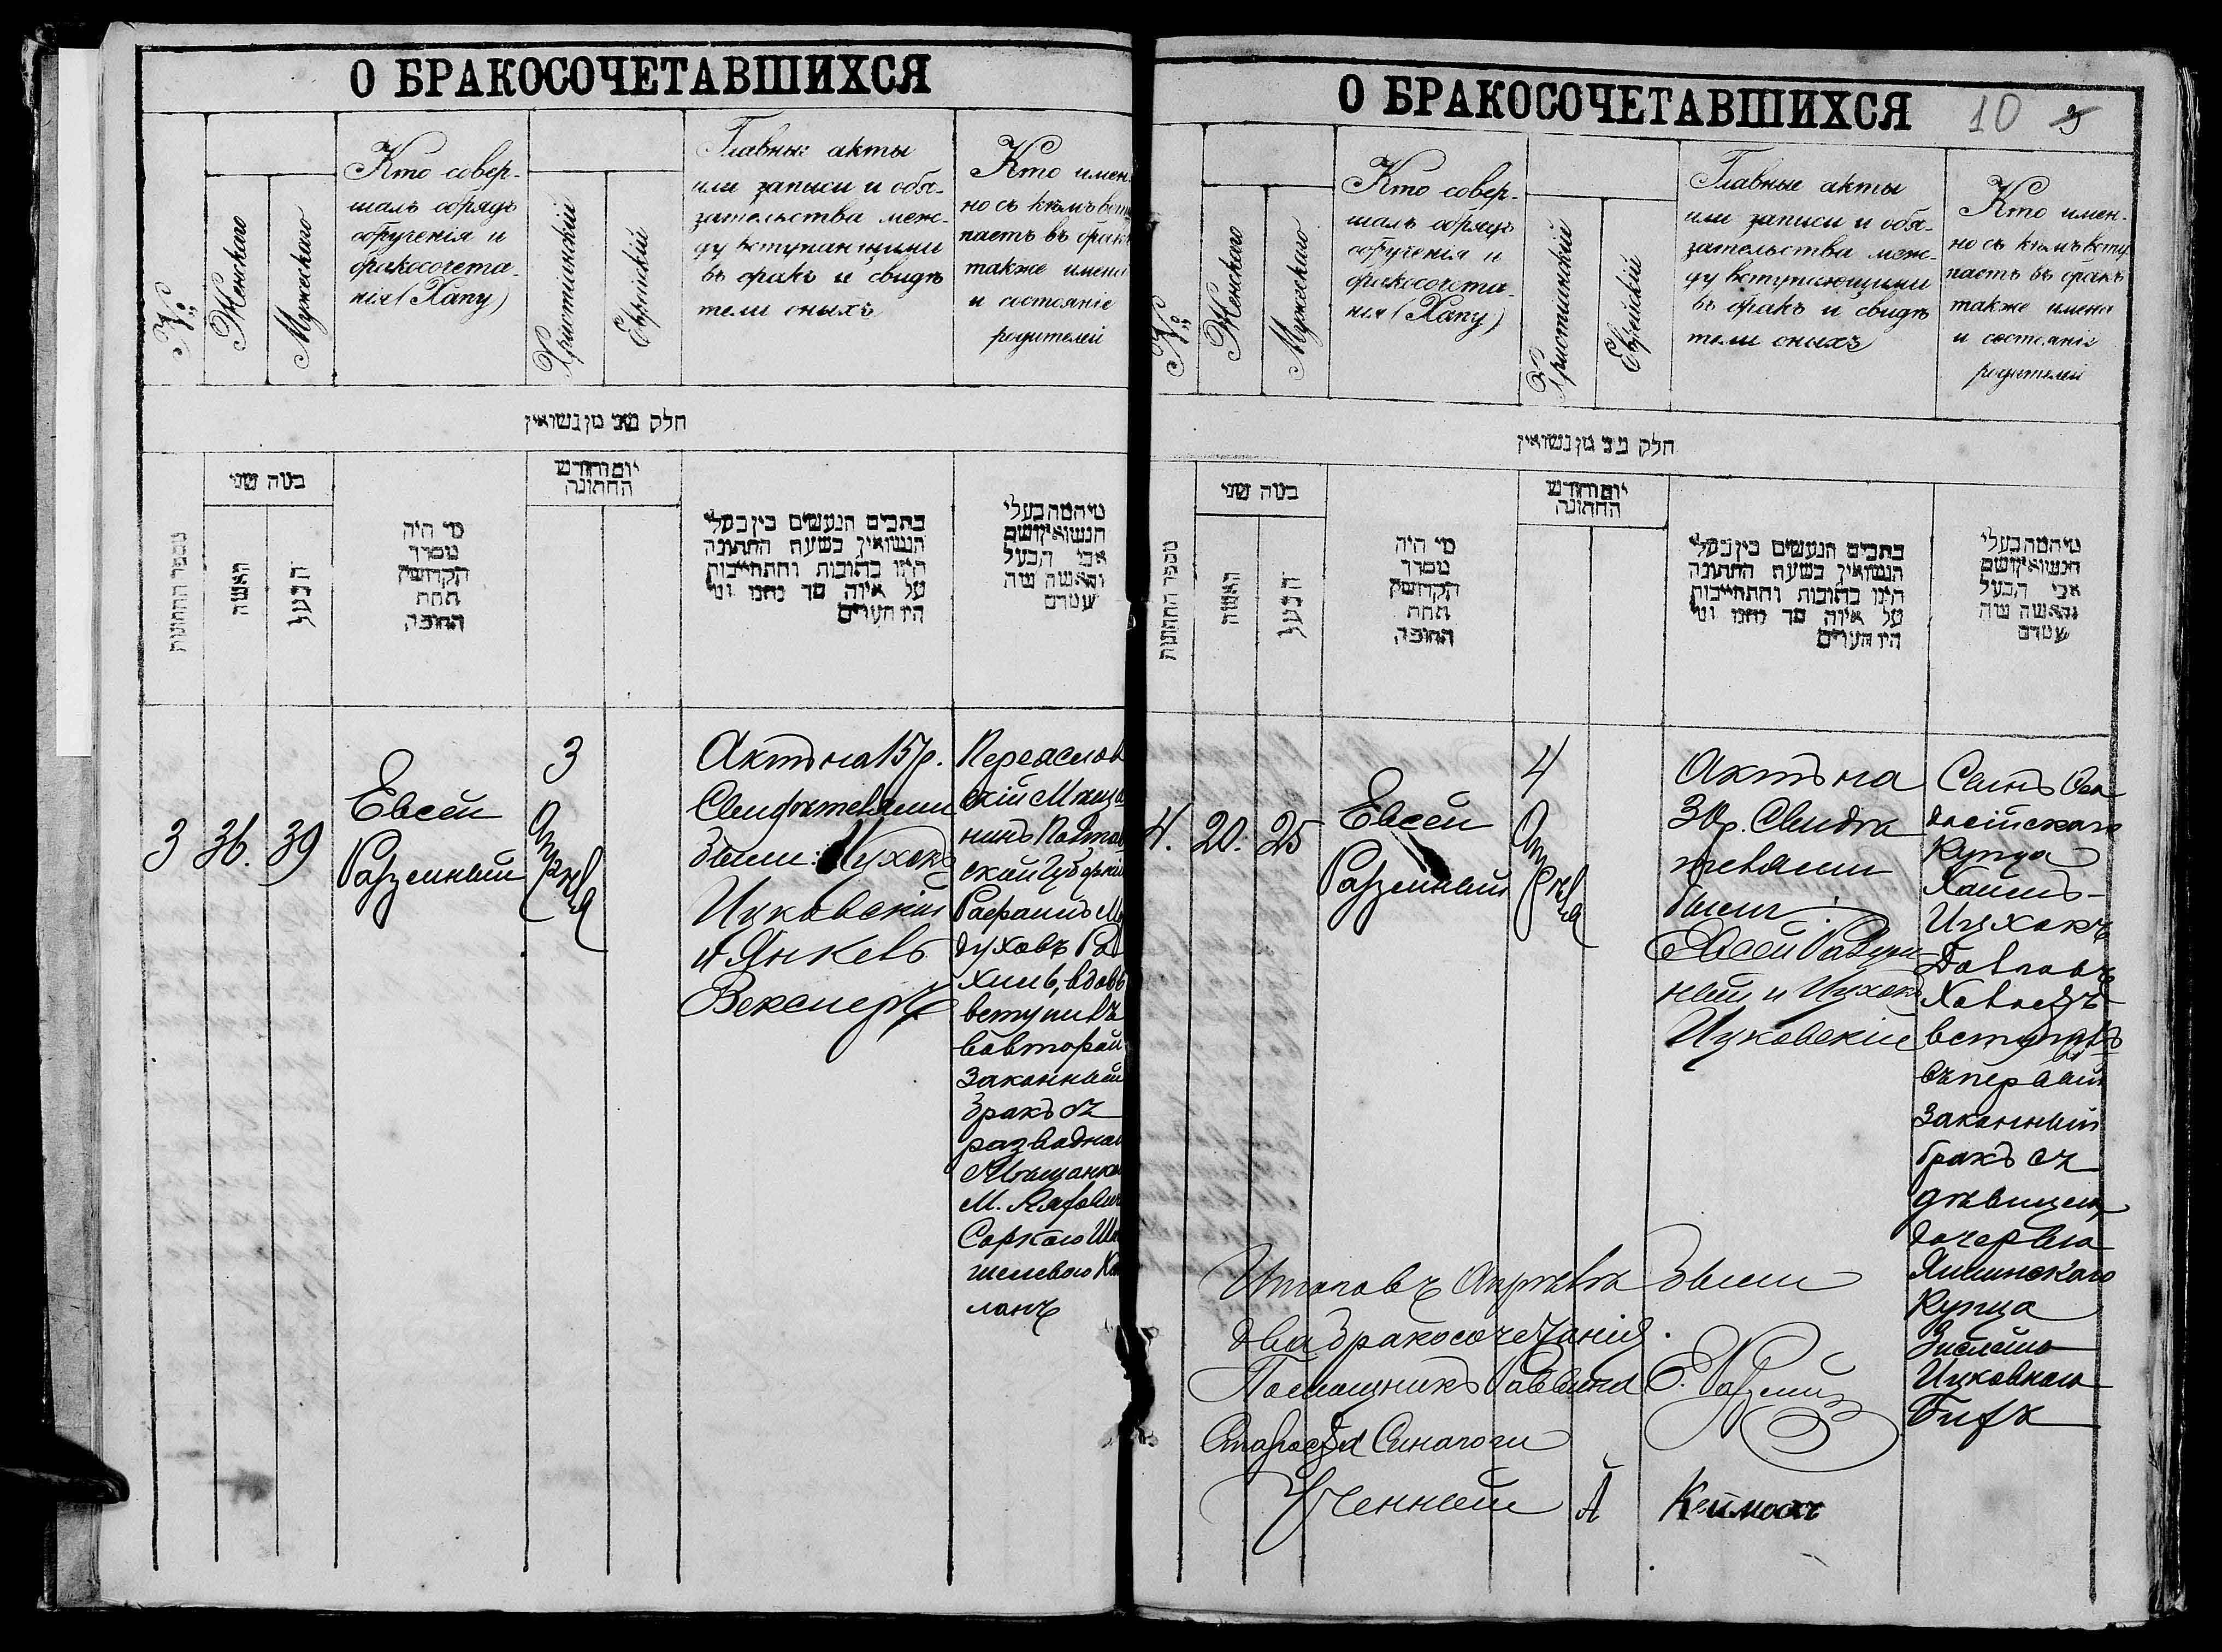 О БРАКОСОЧЕТАВШИХСЯ
№
Женскаго
Мужескаго
Кто совер-
шалъ обрядъ
обрученія и
бракосочета-
нія (Хапу)
Христіанскій
Еврейскій
Главные акты
или записи и обя-
зательства меж-
ду вступающими
въ бракъ и свидѣ
тели оныхъ
Кто имен
но съ кѣмъ всту
паетъ въ бракъ
также имена
и состояніе
родителей
חלק שני מן נשואין
מספר החתונות
כמה שני
האשה
הבעל
מי היה
מסדר
הקדושין
תחת
החופה
יום וחודש
החתונה
כתבים הנעשים בין בעלי
הנשואין בשעת החתונה
היינו כתובות והתחייבות
על איזה סך נתנו ומי
היו העדים
מי המה בעלי
הנשואין ושם
אבי הבעל
והאשה
3
36.
39
Евсей
Разумный
3
Апрѣля
Актъ на 15 р.
Свидѣтелями
были: Ицхокъ
Ицковскій
и Янкевъ
Векслеръ
Переяслов
скій Мѣща
нинъ Полтав
ской Губерніи
Рафаилъ М
духовъ Ра
хиль, вдовъ
вступилъ
во второй
законный
бракъ съ
разводной
Мѣщанкой
М.
Соркою Ш
шелевою К
ланъ
О БРАКОСОЧЕТАВШИХСЯ
10
9
№
Женскаго
Мужескаго
Кто совер-
шалъ обрядъ
обрученія и
бракосочета-
нія (Хапу)
Христіанскій
Еврейскій
Главные акты
или записи и обя-
зательства меж-
ду вступающими
въ бракъ и свидѣ
тели оныхъ
Кто имен-
но съ кѣмъ всту
паетъ въ бракъ
также имена
и состояніе
родителей
חלק שני מן נשואין
מספר החתונות
כמה שני
האשה
הבעל
מי היה
מסדר
הקדושין
תחת
החופה
יום וחודש
החתונה
כתבים הנעשים בין בעלי
הנשואין בשעת החתונה
היינו כתובות והתחייבות
על איזה סך נתנו ומי
היו העדים
מי המה בעלי
הנשואין ושם
אבי הבעל
והאשה
4.
20.
25
Евсей
Разумный
4
Апрѣля
Актъ на
30 р. Свидѣ
телями
были:
Евсей Разум
ный и Ицхокъ
Ицковскій
Сынъ Ѳео
досійскаго
Купца
Хаимъ-
Ицхокъ
Довловъ
вступилъ
въ первый
законный
бракъ съ
дѣвицею,
дочерью
Купца
Ицковною
Итого въ Апрѣлѣ были
два бракосочетанія.
Помощникъ Раввина Е. Разумный
Староста Синагоги
Ученный